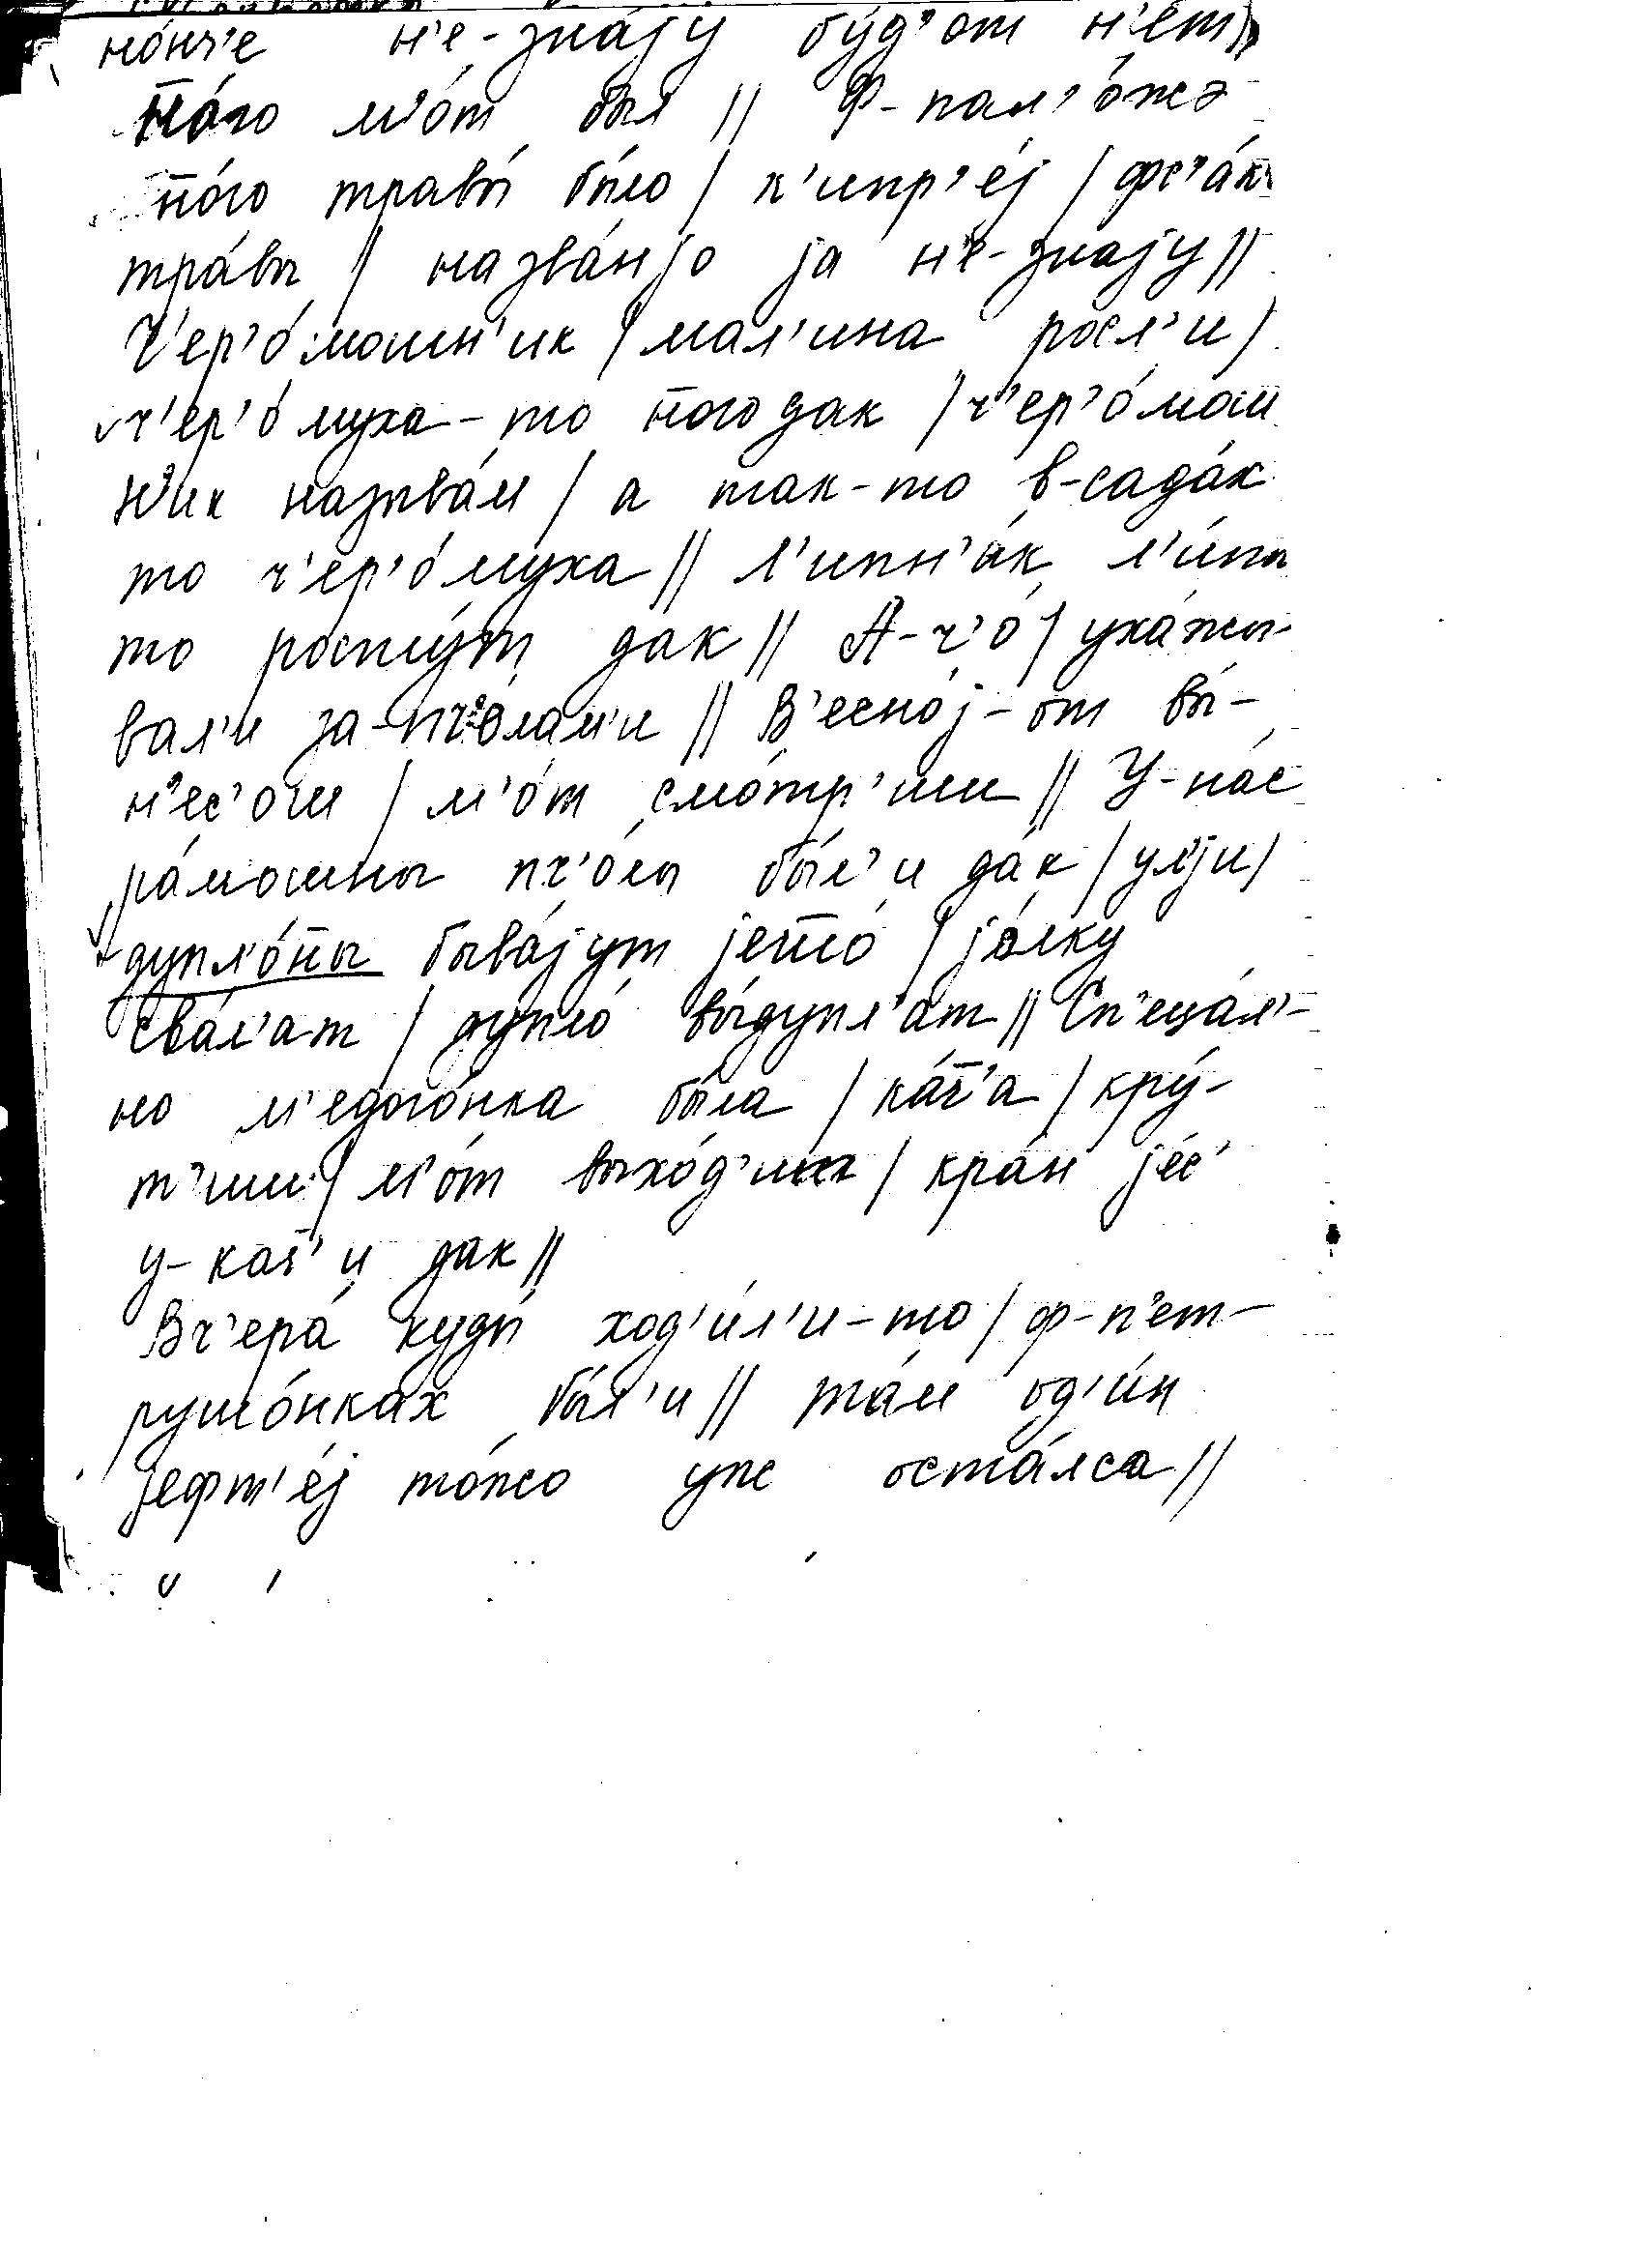 но́нч'е н'е-зна́jу бу́д'от н'е́т//
мно́го м'о́т был // Ф-пал'о́жэ
мно́го травы́ бы́ло / к'ипр'е́j / фс'а́к
тра́вы / назва́нjо jа н'е-знаjу //
Ч'ер'о́мошн'ик / мал'ина росл'и /
ч'ер'о́муха-то много дак / ч'ер'о́мош
н'ик называ́м / а так-то в-сада́к
то ч'ер'о́муха // л'ипн'а́к л'и́пы
то росту́т дак // А-ч'о́ / уха́жы-
вал'и за-пч'о́лам'и // В'есно́j-от вы́-
н'ес'ош / м'о́т смо́тр'иш // У-на́с
ра́мошны пч'о́лы бы́л'и да́к / у́л'jи /
дупл'о́ны быва́jут jешшо́ / jо́лку
сва́л'ат / дупло́ вы́дупл'ат // Сп'еца́л'-
но м'едого́нка была / ка́ч'а / кру́-
т'иш / м'о́т выхо́д'ит / кра́н jе́с'
у-кач'и дак //
Вч'ера́ куды́ ход'и́л'и-то / ф-п'ет-
рушо́нках бы́л'и // та́м од'и́н
jефт'е́j то́жо уж оста́лса //